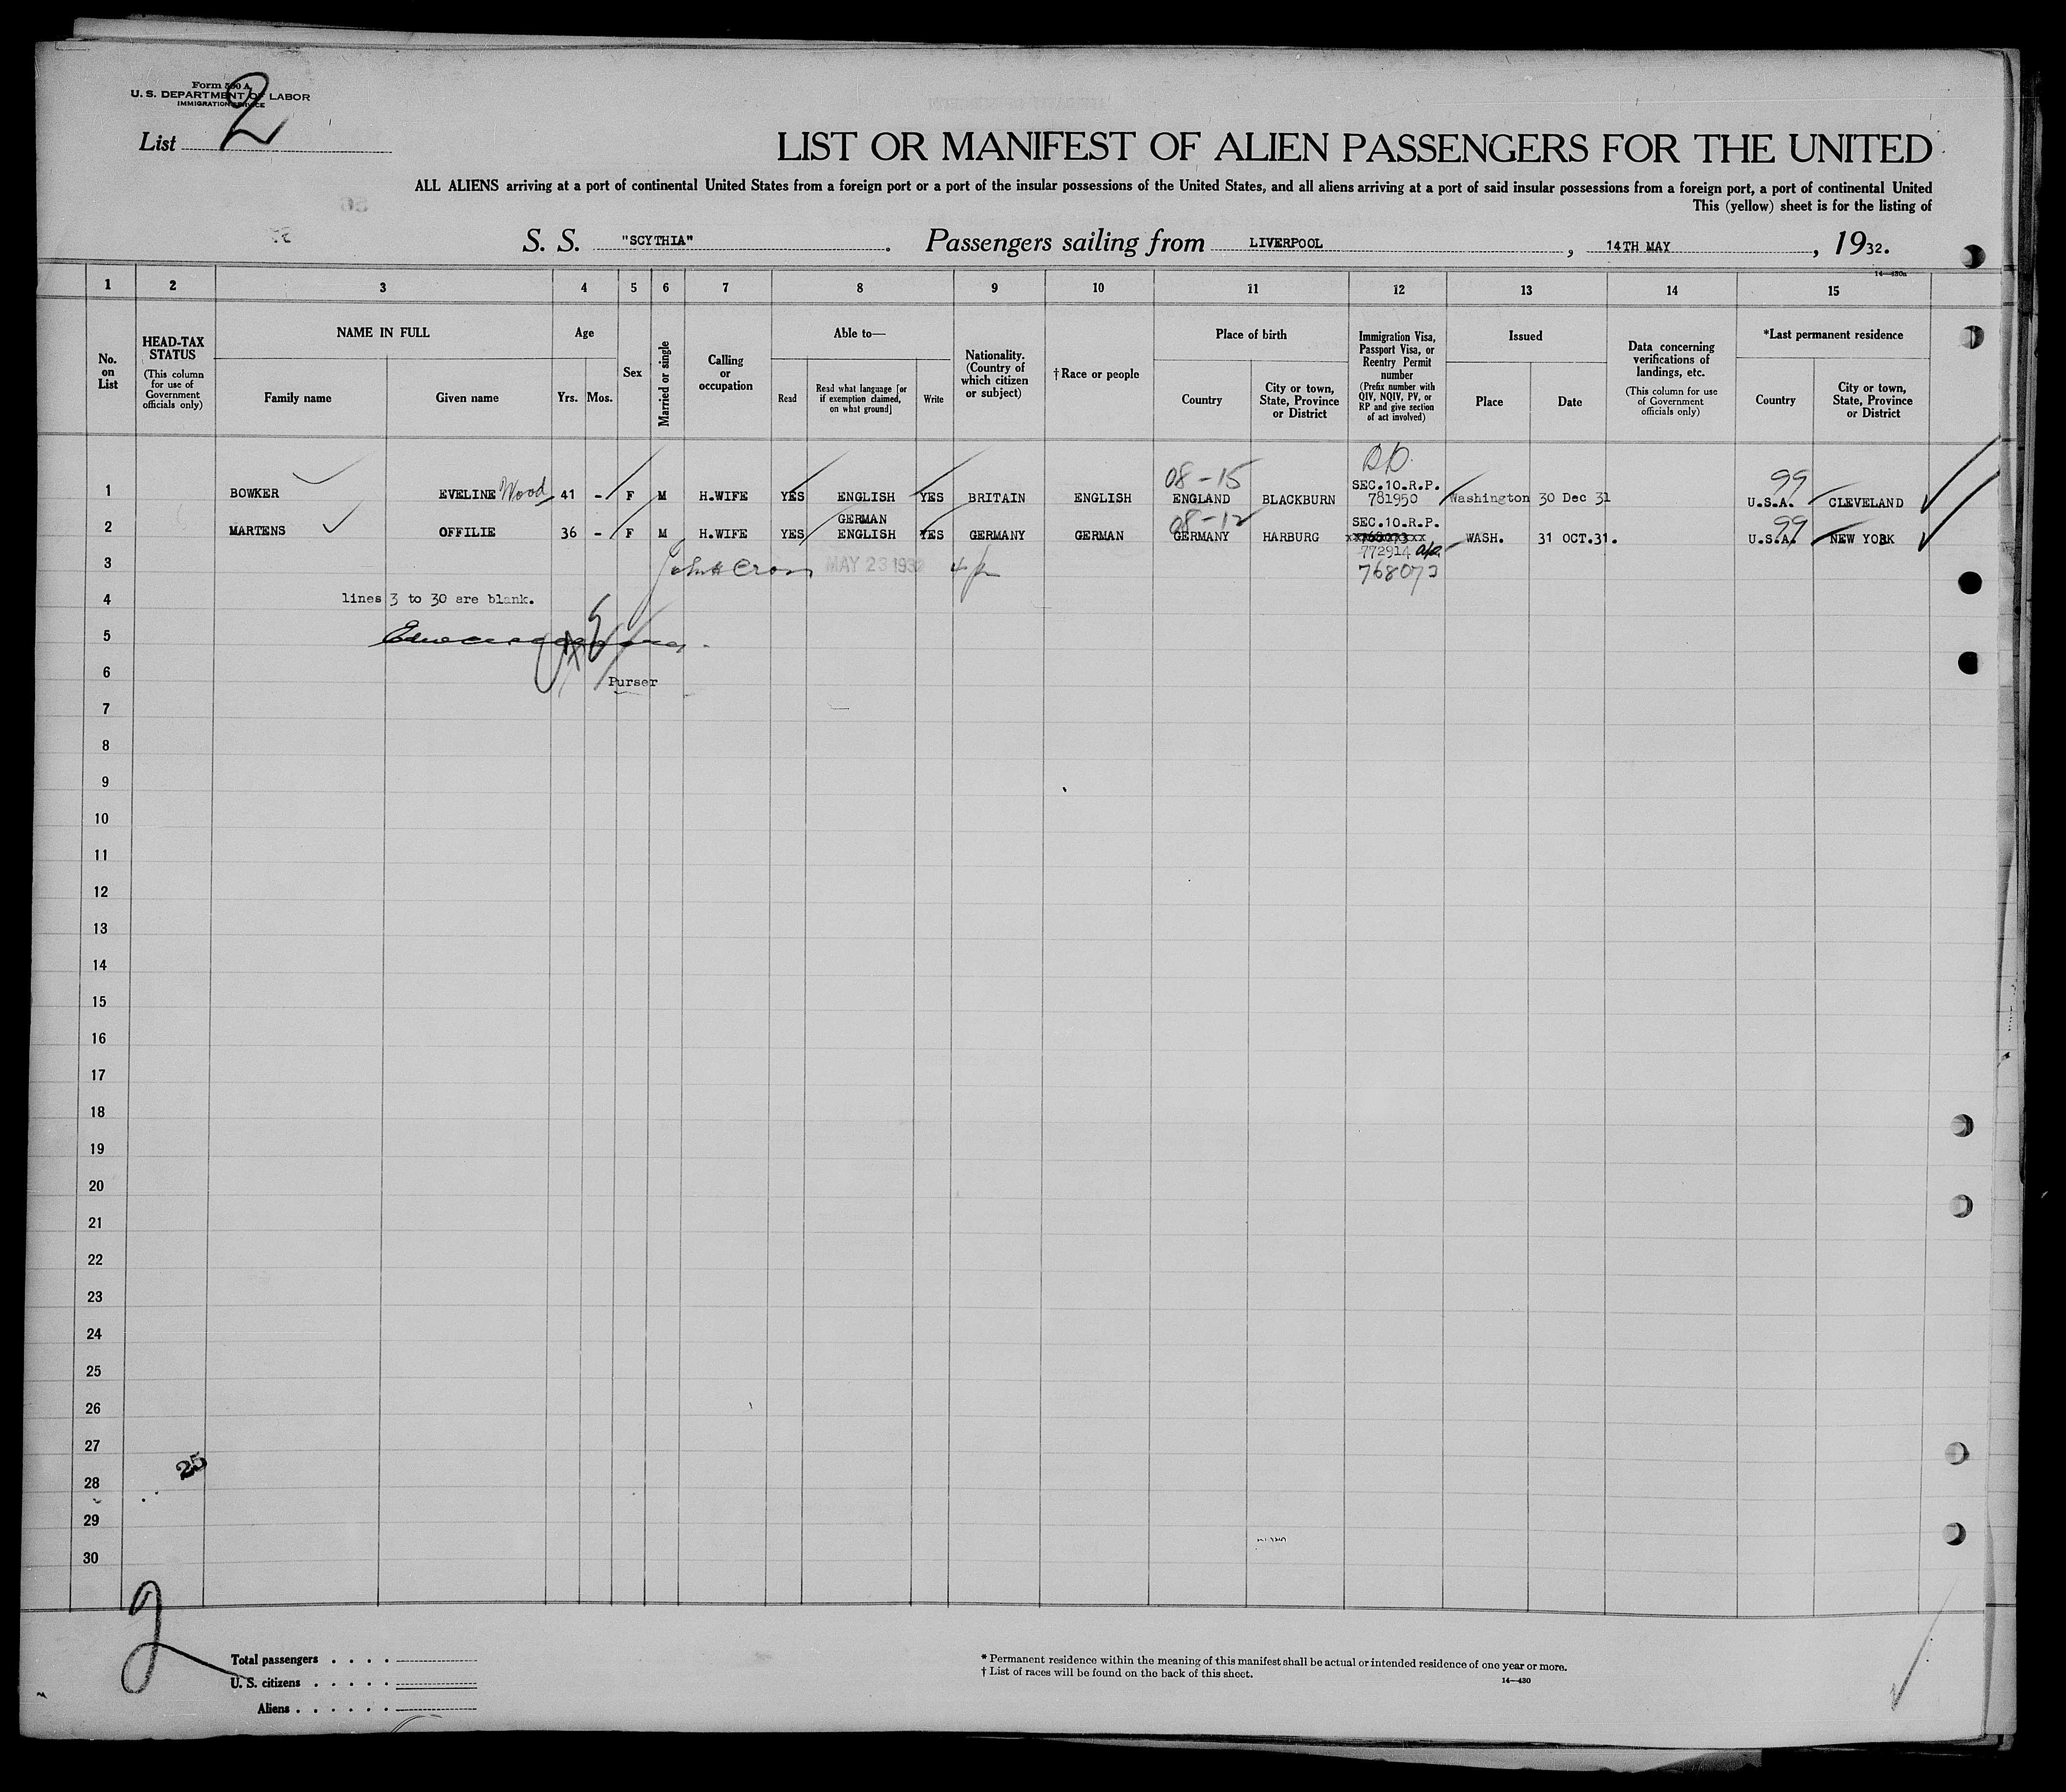 Form 500 A
U. S. DEPARTMENT OF LABOR
IMMIGRATION SERVICE
List 2
LIST OR MANIFEST OF ALIEN PASSENGERS FOR THE UNITED
ALL ALIENS arriving at a port of continental United States from a foreign port or a port of the insular possessions of the United States, and all aliens arriving at a port of said insular possessions from a foreign port, a port of continental United
This (yellow) sheet is for the listing of
S. S. "SCYTHIA". Passengers sailing from LIVERPOOL, 14TH MAY, 1932.
14—430a
1 2 3 4 5 6 7 8 9 10 11 12 13 14 15
No. on List
HEAD-TAX STATUS (This column for use of Government officials only)
NAME IN FULL
Family name Given name
Age
Yrs. Mos.
Sex
Married or single
Calling or occupation
Able to—
Read Read what language [or if exemption claimed, on what ground] Write
Nationality. (Country of which citizen or subject)
†Race or people
Place of birth
Country City or town, State, Province or District
Immigration Visa, Passport Visa, or Reentry Permit number (Prefix number with QIV, NQIV, PV, or RP and give section of act involved)
Issued
Place Date
Data concerning verifications of landings, etc. (This column for use of Government officials only)
*Last permanent residence
Country City or town, State, Province or District
08-15 99
SEC.10.R.P.
1 BOWKER EVELINE Wood 41 - F M H.WIFE YES ENGLISH YES BRITAIN ENGLISH ENGLAND BLACKBURN 781950 Washington 30 Dec 31 U.S.A. CLEVELAND
GERMAN 08-12 SEC.10.R.P. 99
2 MARTENS OFFILIE 36 - F M H.WIFE YES ENGLISH YES GERMANY GERMAN GERMANY HARBURG xx768073xx WASH. 31 OCT.31. U.S.A. NEW YORK
772914
3 John Cross MAY 23 1932 768073
4 lines 3 to 30 are blank.
5
6 Purser
7
8
9
10
11
12
13
14
15
16
17
18
19
20
21
22
23
24
25
26
27
25
28
29
30
2
Total passengers . . . .
U. S. citizens . . . . .
Aliens . . . . . .
* Permanent residence within the meaning of this manifest shall be actual or intended residence of one year or more.
† List of races will be found on the back of this sheet.
14—430